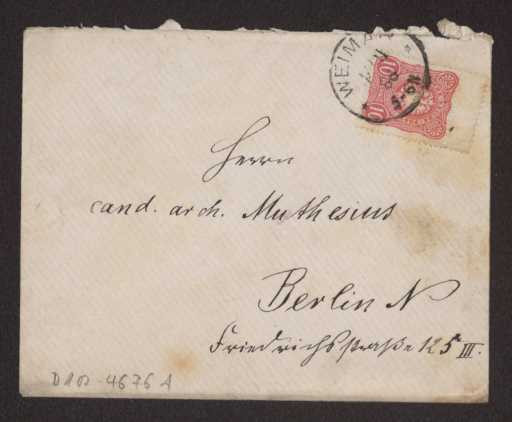 WEIMAR
10 10
Herrn
cand. arch. Muthesius
Berlin N
Friedrichsstraße 125 III.
D 102-4676 A